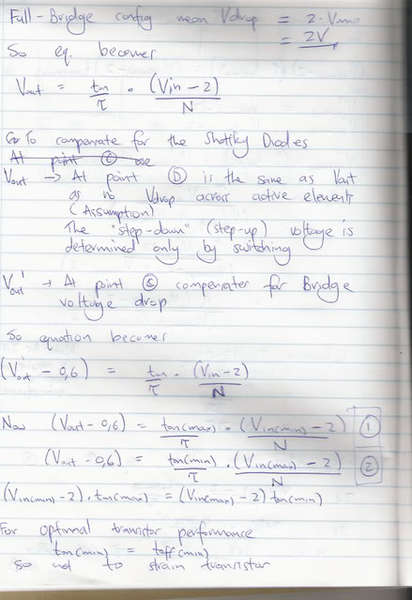 Full-Bridge config mean Vdrop = 2·Vmos
= 2V
So eq. becomes
Vout = ton/τ · (Vin - 2)/N
Go To compensate for the Shottky Diodes
At point C we
Vout → At point D is the same as Vout
as no Vdrop across active elements
(Assumption)
The "step-down" (step-up) voltage is
determined only by switching
Vout' → At point C compensates for Bridge
voltage drop
So equation becomes
(Vout' - 0,6) = ton/τ · (Vin-2)/N
Now (Vout - 0,6) = ton(max)/τ · (Vin(min) - 2)/N ①
(Vout - 0,6) = ton(min)/τ · (Vin(max) - 2)/N ②
(Vin(min) - 2) · ton(max) = (Vin(max) - 2) ton(min)
For optimal transistor performance
ton(min) = toff(min)
so not to strain transistor